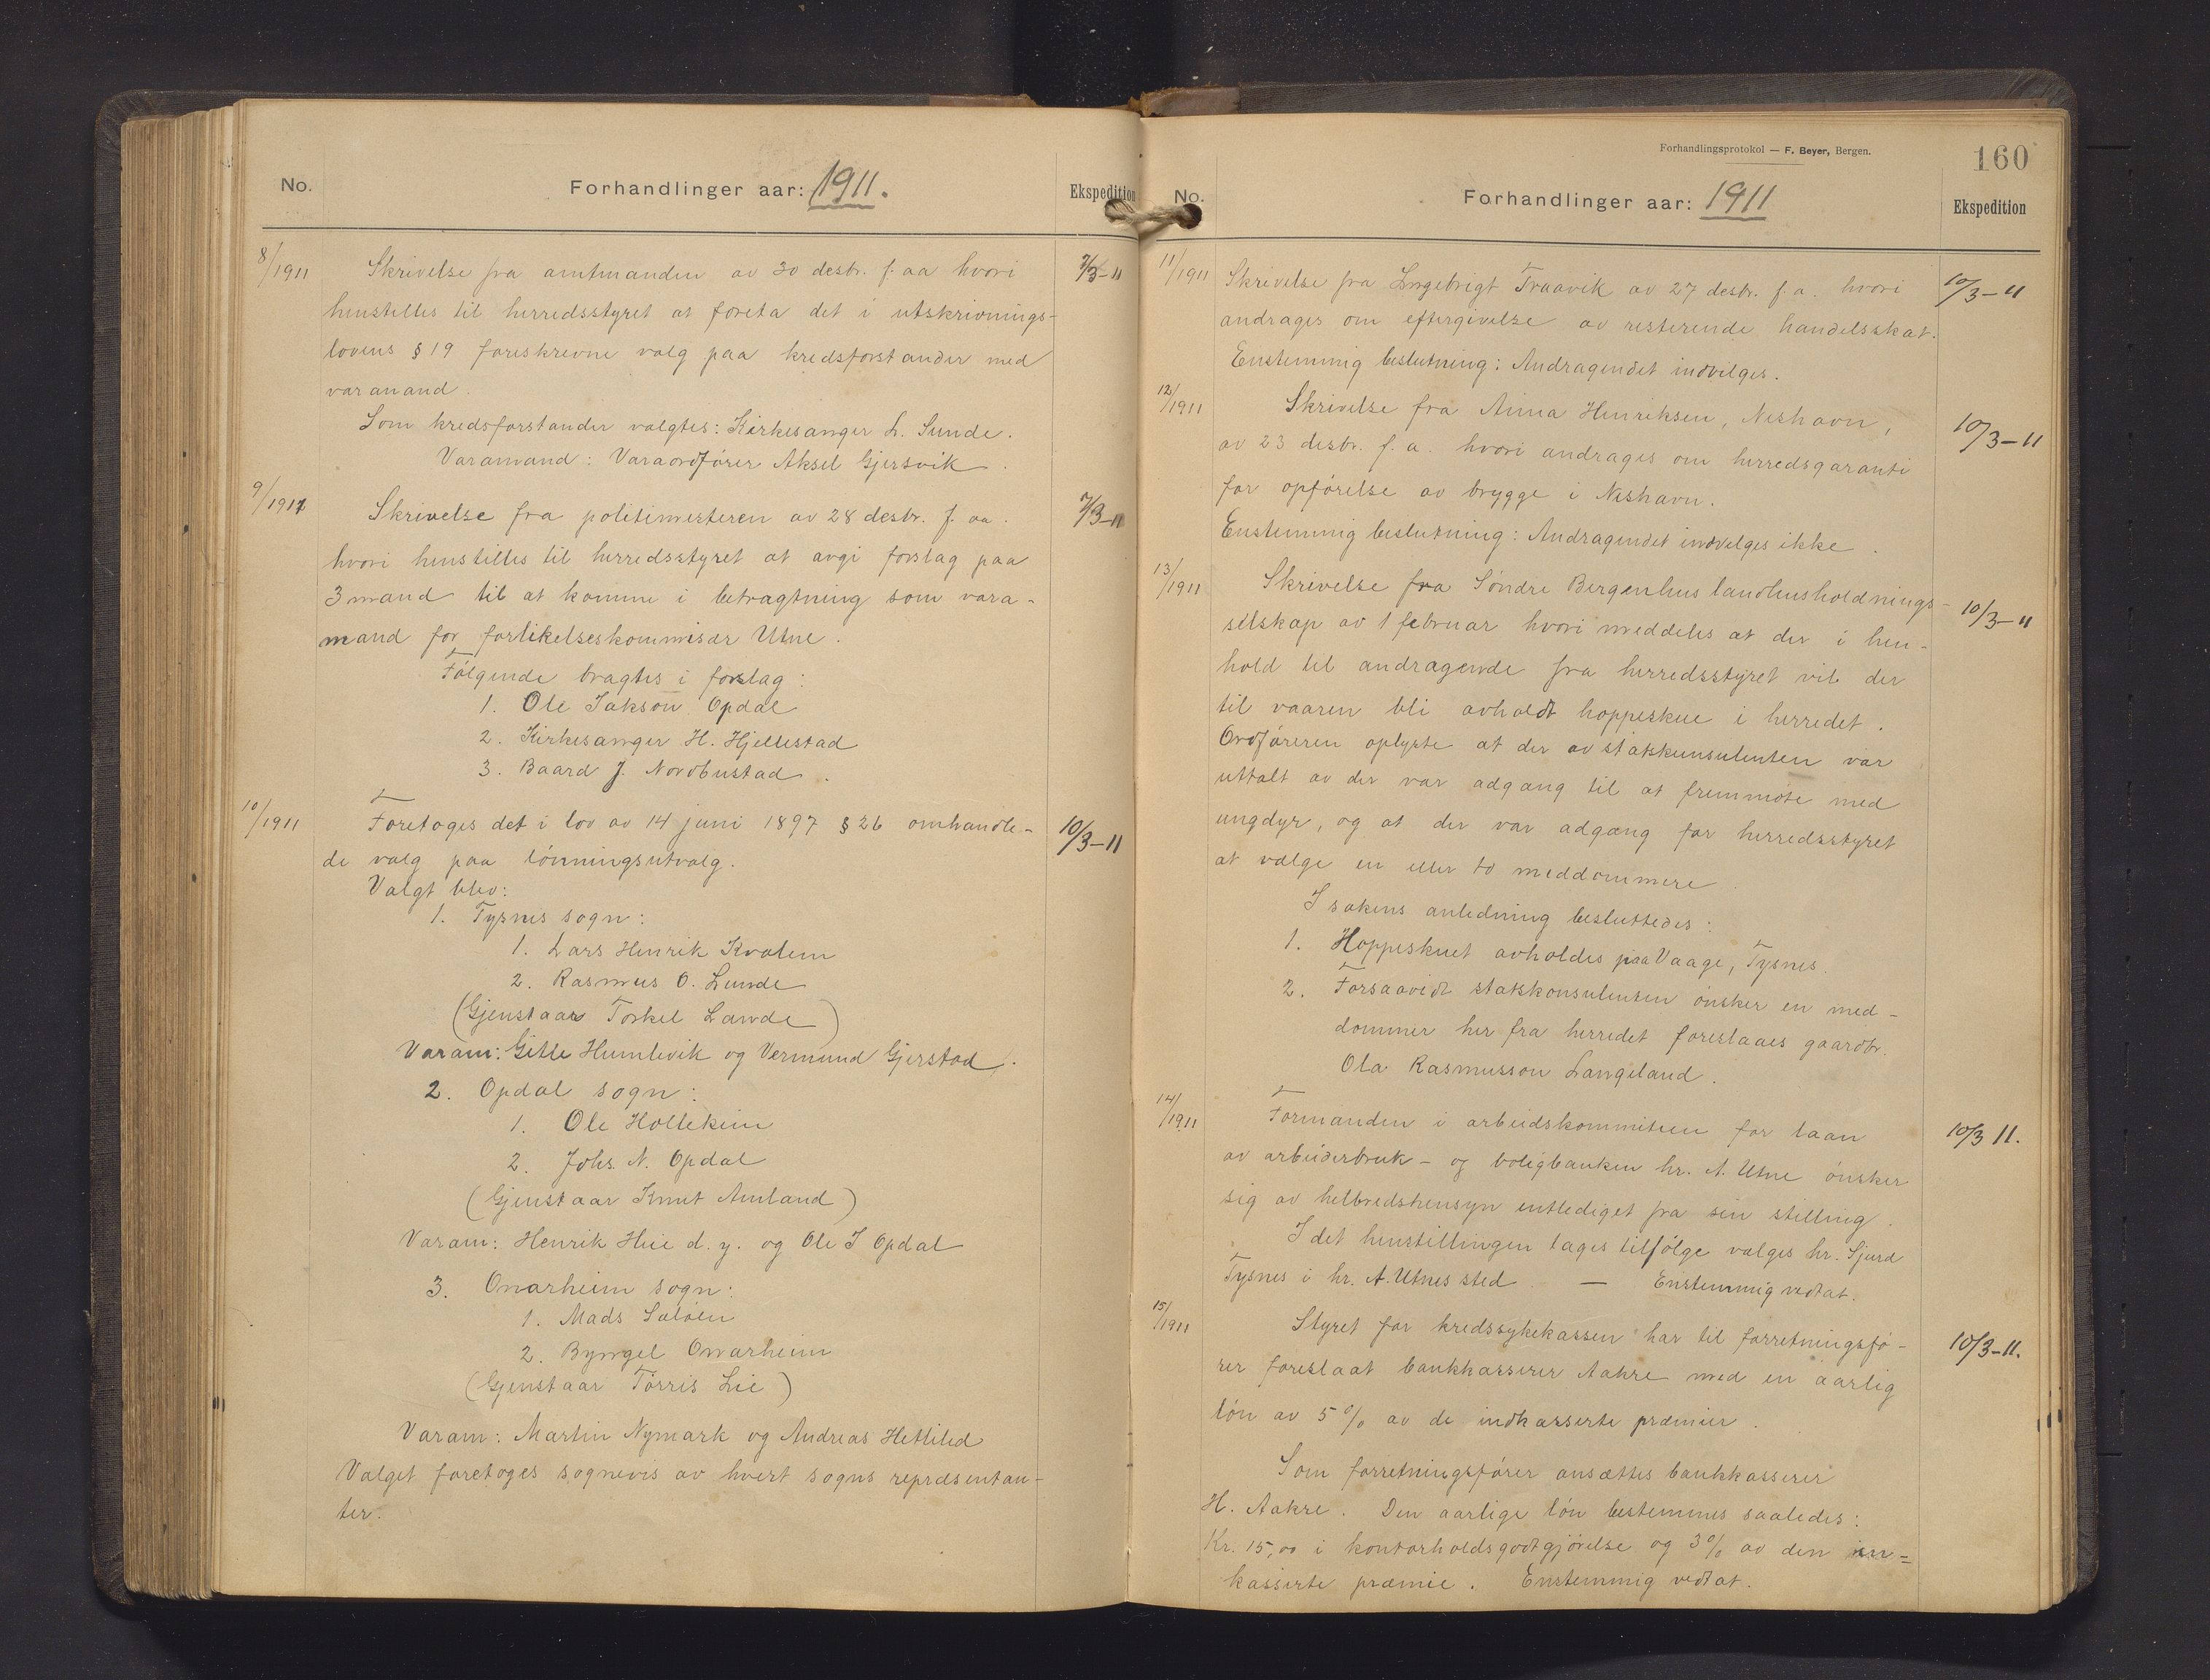 No.
Forhandlinger aar: 1911.
Ekspedition
8/1911
7/3-11
Skrivelse fra amtmanden av 30 desbr. f. aa hvori
henstilles til herredsstyret at foreta det i utskrivnings-
lovens § 19 foreskrevne valg paa kredsforstander med
varamand.
Som kredsforstander valgtes: Kirkesanger L. Sunde.
Varamand: Varaordfører Aksel Gjersvik.
9/1911
7/3-11
Skrivelse fra politimesteren av 28 desbr. f. aa.
hvori henstilles til herredsstyret at avgi forslag paa
3 mand til at komme i betragtning som vara-
mand for forlikelseskommisær Utne.
Følgende bragtes i forslag:
1. Ole Jakson Opdal
2. Kirkesanger H. Hjellestad
3. Baard J. Nordbustad.
10/1911
10/3-11
Foretoges det i lov av 14 juni 1897 § 26 omhandle-
de valg paa lønningsutvalg.
Valgt blev:
1. Tysnes sogn:
1. Lars Henrik Kvalem
2. Rasmus O. Lunde
(Gjenstaar Torkel Lande)
Varam: Gitle Humlevik og Vermund Gjerstad.
2. Opdal sogn:
1. Ole Hollekim
2. Johs. N. Opdal
(Gjenstaar Knut Amland)
Varam: Henrik Heie d. y. og Ole J Opdal
3. Onarheim sogn:
1. Mads Sæløen
2. Byngel Onarheim
(Gjenstaar Tørris Lie)
Varam: Martin Nymark og Andreas Hetlelid
Valget foretoges sognevis av hvert sogns repræsentan-
ter.
Forhandlingsprotokol — F. Beyer, Bergen.
160
No.
Forhandlinger aar: 1911
Ekspedition
11/1911
10/3-11
Skrivelse fra Ingebrigt Traavik av 27 desbr. f. a. hvori
andrages om eftergivelse av resterende handelsskat.
Enstemmig beslutning: Andragendet indvilges.
12/1911
10/3-11
Skrivelse fra Anna Henriksen, Neshavn,
av 23 desbr. f. a. hvori andrages om herredsgaranti
for opførelse av brygge i Neshavn.
Enstemmig beslutning: Andragendet indvilges ikke.
13/1911
10/3-11
Skrivelse fra Søndre Bergenhus landhusholdnings-
selskap av 1 februar hvori meddeles at der i hen-
hold til andragende fra herredsstyret vil der
til vaaren bli avholdt hoppeskue i herredet.
Ordføreren oplyste at der av statskunsulenten var
uttalt av der var adgang til at fremmøte med
ungdyr, og at der var adgang for herredsstyret
at vælge en eller to meddommere.
I sakens anledning besluttedes:
1. Hoppeskuet avholdes paa Vaage, Tysnes.
2. Forsaavidt statskonsulenten ønsker en med-
dommer her fra herredet foreslaaes gaardbr.
Ola Rasmusson Langeland.
14/1911
10/3 11.
Formanden i arbeidskommiteen for laan
av arbeiderbruk- og boligbanken hr. A. Utne ønsker
sig av helbredshensyn entlediget fra sin stilling.
I det henstillingen tages tilfølge vælges hr. Sjurd
Tysnes i hr. A. Utnes sted — Enstemmig vedtat.
15/1911
10/3-11.
Styret for kredssykekassen har til forretningsfø-
rer foreslaat bankkasserer Aakre med en aarlig
løn av 5 % av de indkasserte præmier.
Som forretningsfører ansættes bankkasserer
H. Aakre. Den aarlige løn bestemmes saaledes:
Kr. 15,00 i kontorholdsgodtgjørelse og 3 % av den in-
kasserte præmie. Enstemmig vedtat.